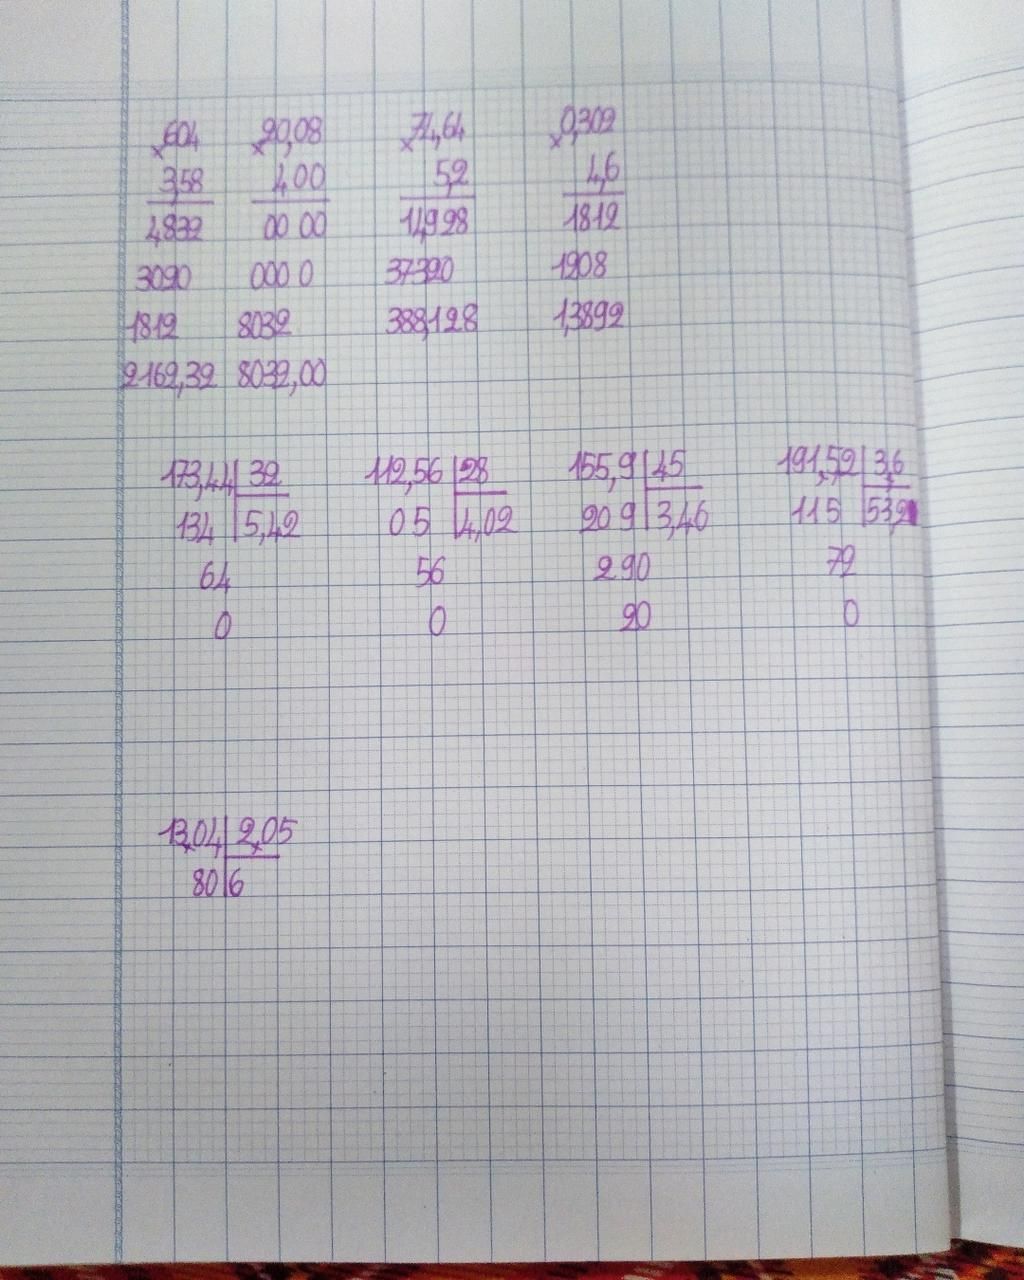 × 604 × 20,08 × 74,64 × 0,302
3,58 400 5,2 4,6
4832 00 00 14928 1812
3020 000 0 37320 1208
1812 8032 388,128 1,3892
2162,32 8032,00
173,44 32 112,56 28 155,9 45 191,52 3,6
134 5,42 05 4,02 209 3,46 115 53,2
64 56 290 72
0 0 20 0
13,04 2,05
80 6